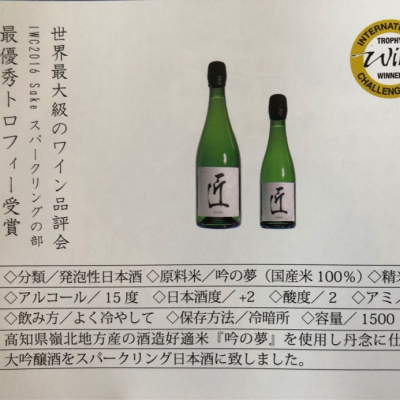 世界最大級のワイン品評会
IWC2016 Sake スパークリングの部
最優秀トロフィー受賞
INTERNATIONAL
TROPHY
WINNER
CHALLENGE
匠
匠
◇分類／発泡性日本酒 ◇原料米／吟の夢（国産米100%）◇精米
◇アルコール／15度 ◇日本酒度／+2 ◇酸度／2 ◇アミノ
◇飲み方／よく冷やして ◇保存方法／冷暗所 ◇容量／1500
高知県嶺北地方産の酒造好適米『吟の夢』を使用し丹念に仕
大吟醸酒をスパークリング日本酒に致しました。